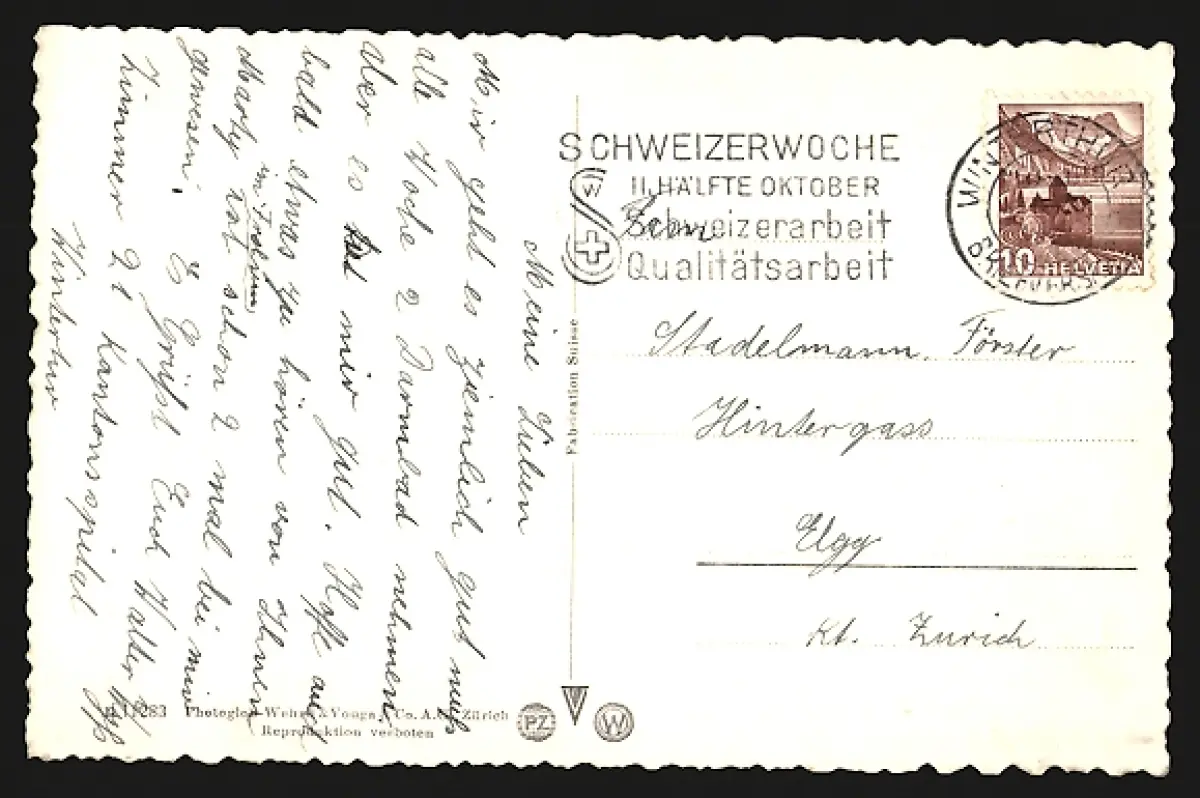 Meine Lieben
Mir geht es ziemlich gut muß
alle Woche 2 Darmbad nehmen
aber es tut mir gut. Hoffe auch
bald etwas zu hören von Ihnen
Marty hat schon 2 mal bei mir
gewesen. Es Grüßt Euch Walter
Zimmer 21 Kantonsspital
Winterthur
SCHWEIZERWOCHE
II. HÄLFTE OKTOBER
Schweizerarbeit
Qualitätsarbeit
WINTERTHUR
BRIEFVERS.
10 HELVETIA
Fam
Stadelmann, Förster
Hintergass
Elgg
Kt. Zurich
Fabrication Suisse
11283 Photoglob-Wehrli & Vouga & Co. A.G. Zürich
Reproduktion verboten
PZ W